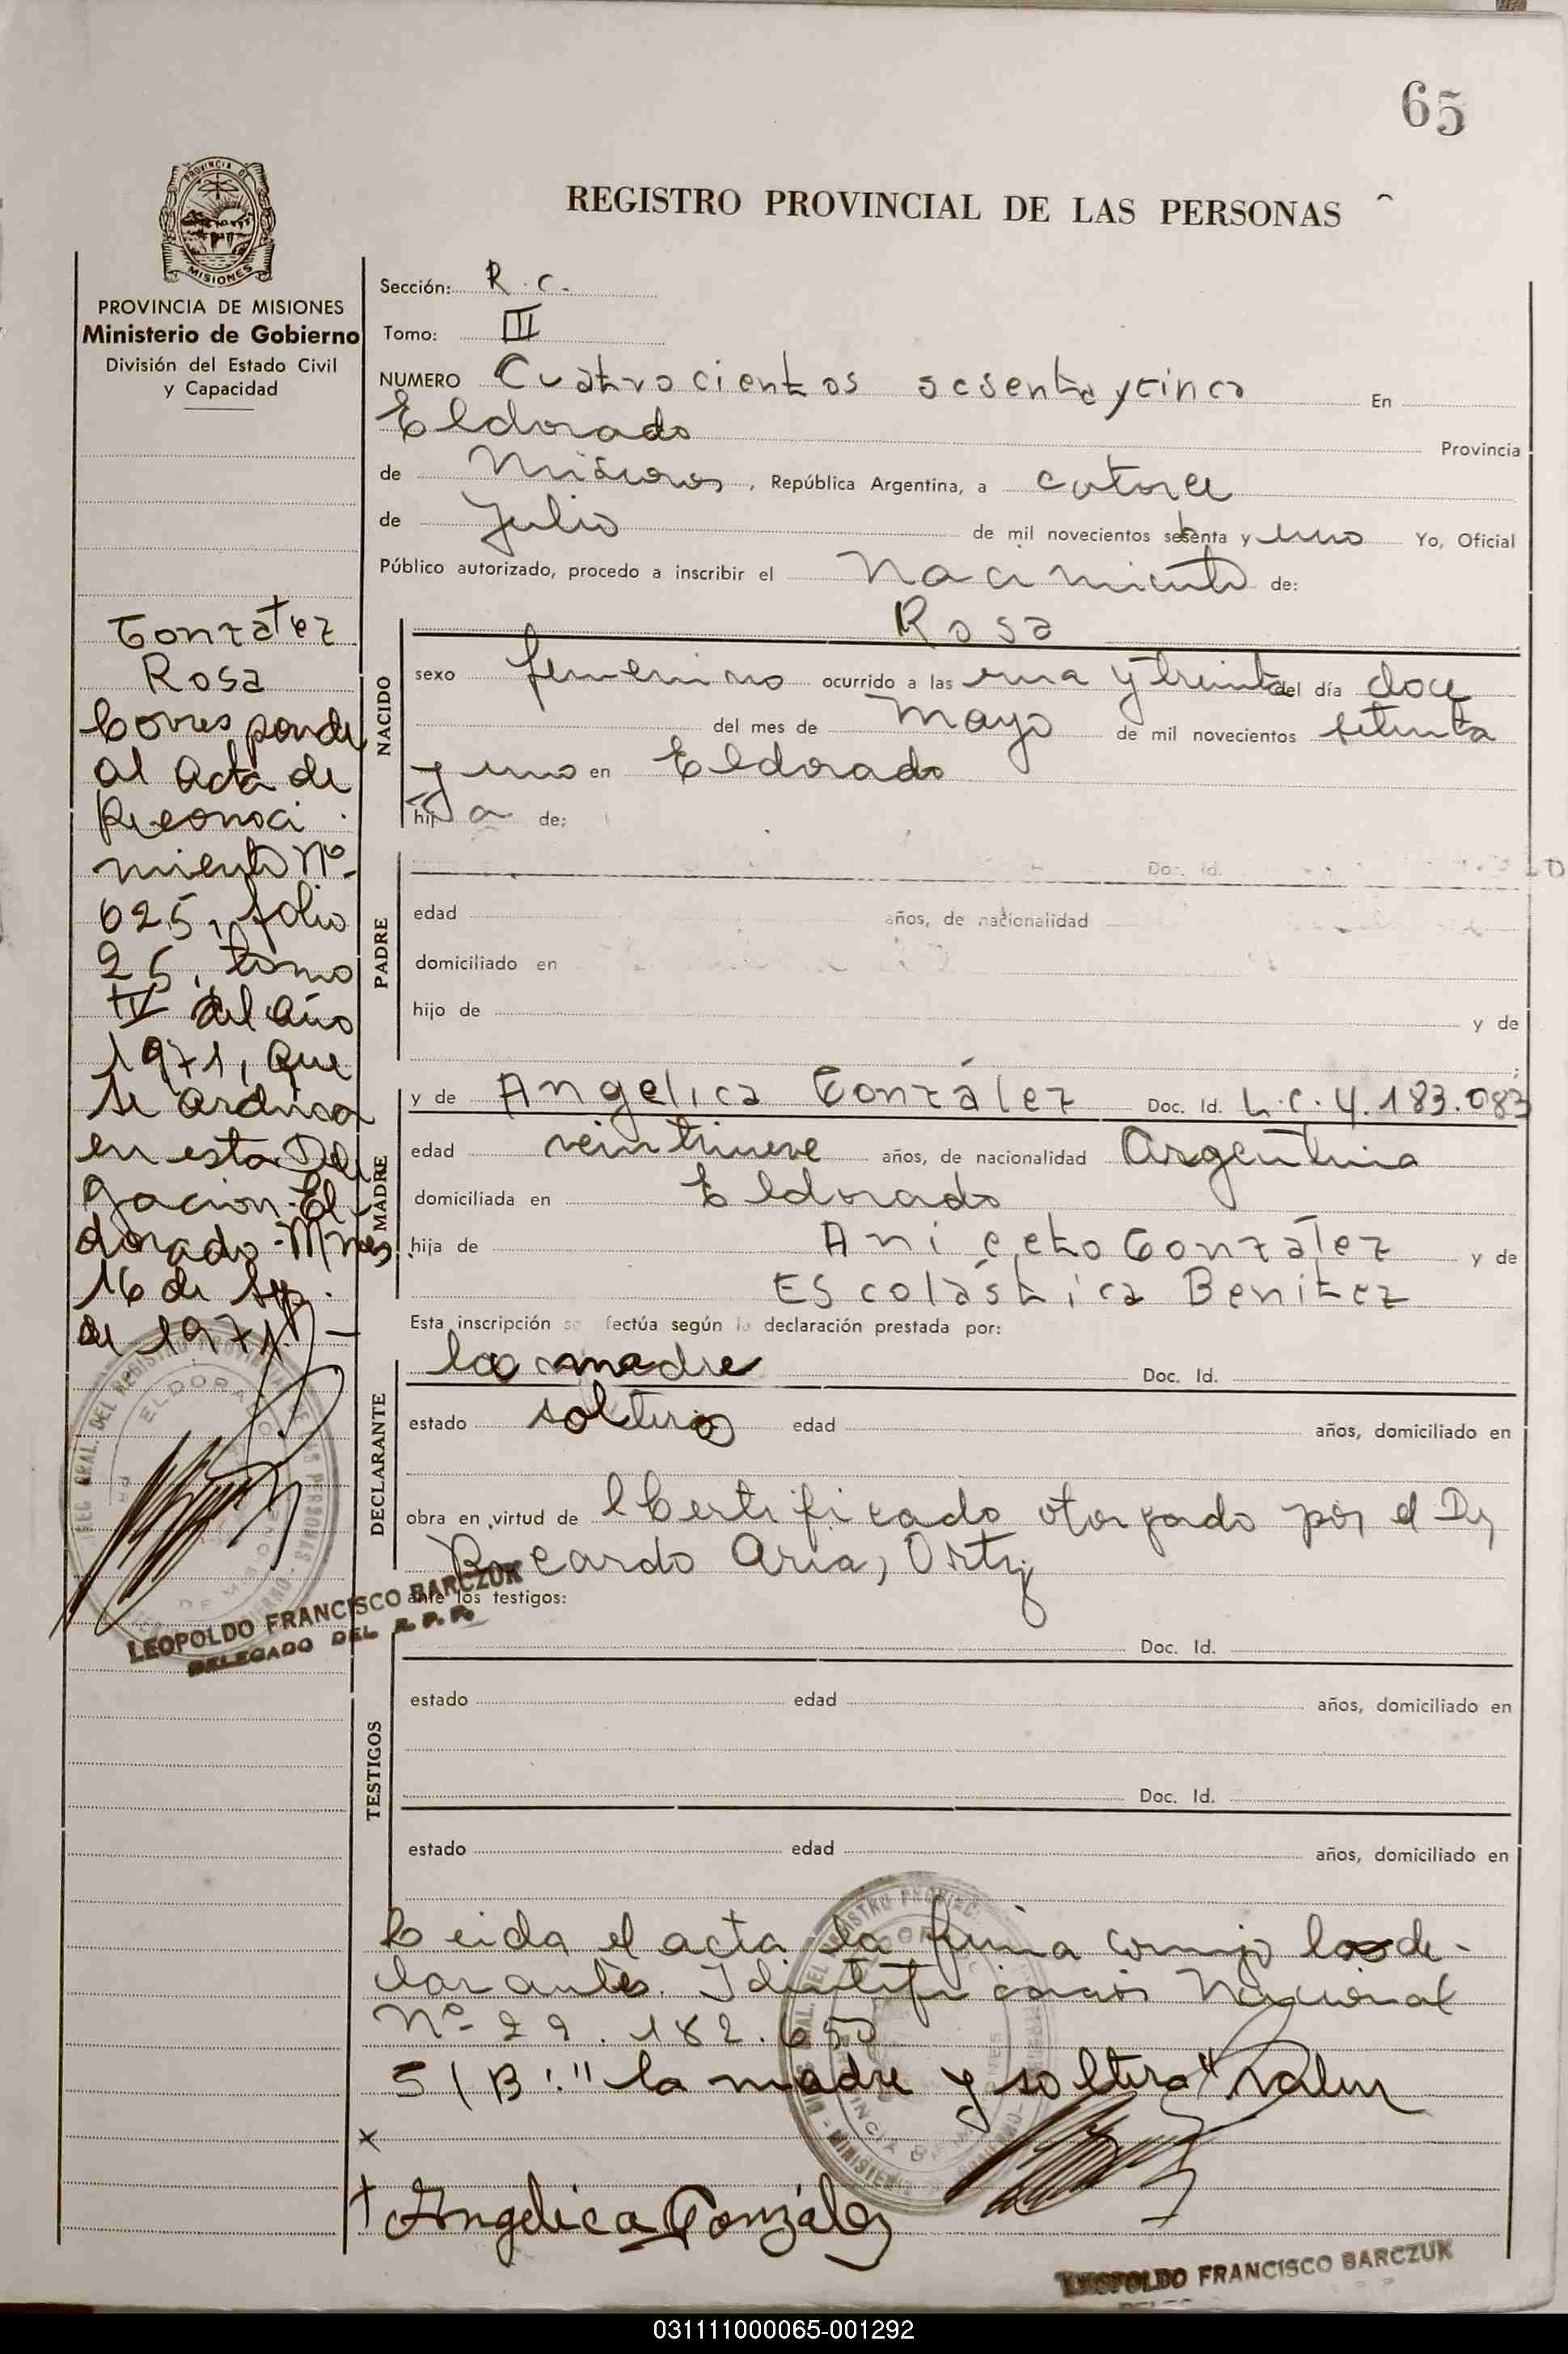 65
REGISTRO PROVINCIAL DE LAS PERSONAS
PROVINCIA DE MISIONES
Ministerio de Gobierno
División del Estado Civil
y Capacidad
González
Rosa
Corresponde
al Acta de
Reconoci
miento Nº
625, folio
25, tomo
IV del año
1971, que
se archiva
en esta Dele
gación. El-
dorado - Mnes,
16 de Sep.
de 1971. -
LEOPOLDO FRANCISCO BARCZUK
DELEGADO DEL R. P. P.
Sección: R. C.
Tomo: III
NUMERO Cuatrocientos sesenta y cinco En
Eldorado Provincia
de Misiones, República Argentina, a catorce
de Julio de mil novecientos setenta y uno Yo, Oficial
Público autorizado, procedo a inscribir el nacimiento de:
NACIDO
Rosa
sexo femenino ocurrido a las una y treinta del día doce
del mes de mayo de mil novecientos setenta
y uno en Eldorado
hija de:
PADRE
Doc. Id.
edad años, de nacionalidad
domiciliado en
hijo de y de
MADRE
y de Angelica González Doc. Id. L.C. 4.183.083
edad veintinueve años, de nacionalidad Argentina
domiciliada en Eldorado
hija de Aniceto González y de
Escolástica Benítez
Esta inscripción se fectúa según la declaración prestada por:
DECLARANTE
la madre Doc. Id.
estado soltera edad años, domiciliado en
obra en virtud de Certificado otorgado por el Dr
Ricardo Aria, Ortiz
ante los testigos:
TESTIGOS
Doc. Id.
estado edad años, domiciliado en
Doc. Id.
estado edad años, domiciliado en
Leida el acta la firma conmigo la de-
clarante. Identificación Nacional
Nº 22.182.650
S/B: "la madre y soltera" Valen
x
+ Angelica González
LEOPOLDO FRANCISCO BARCZUK
031111000065-001292